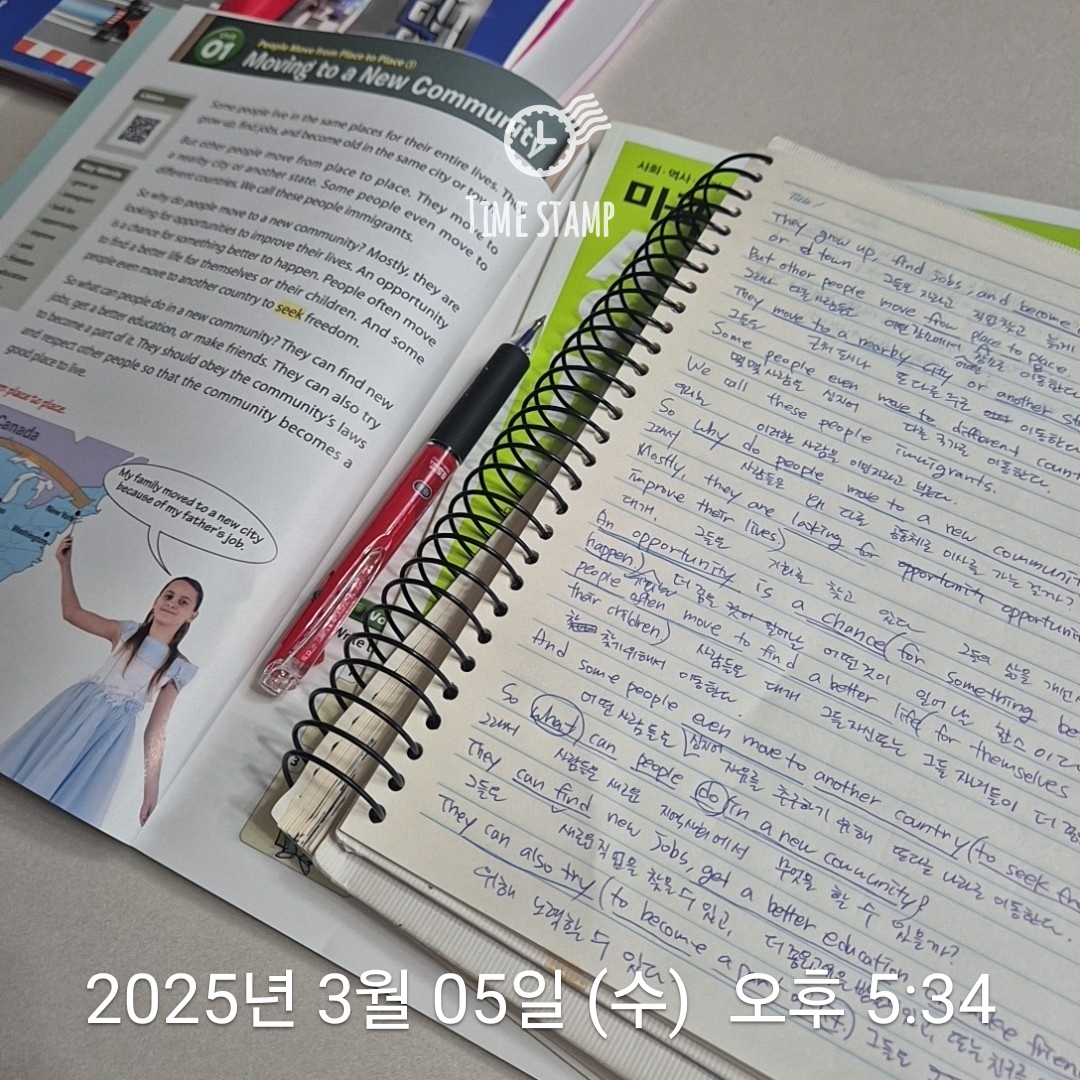 UNIT 01
People Move from Place to Place ①
Moving to a New Community
Some people live in the same places for their entire lives. They
grow up, find jobs, and become old in the same city or town.
But other people move from place to place. They move to
a nearby city or another state. Some people even move to
different countries. We call these people immigrants.
So why do people move to a new community? Mostly, they are
looking for opportunities to improve their lives. An opportunity
is a chance for something better to happen. People often move
to find a better life for themselves or their children. And some
people even move to another country to seek freedom.
So what can people do in a new community? They can find new
jobs, get a better education, or make friends. They can also try
to become a part of it. They should obey the community's laws
and respect other people so that the community becomes a
good place to live.
place to place
Canada
New York
Washington
My family moved to a new city
because of my father's job.
사회·역사
미국
TIME STAMP
Title /
They grow up, find jobs, and become
or d town. 그들은 자라고 직업찾고 늙게
But other people move from place to place
그러나 다른 사람들은 이동한다
They move to a nearby city or another
그들은 근처 도시나 또다른 주로 이동한다
Some people even move to different
몇몇 사람들은 심지어 다른 국가로 이동한다.
We call these people immigrants.
우리는 이러한 사람을 이민자라고 부른다.
So why do people move to a new
그래서 사람들은 왜 다른 공동체로 이사를 가는 걸까?
Mostly, they are looking for opportunity
improve their lives)
대개, 그들은 기회를 찾고 있다 그들의 삶을
An opportunity is a chance (for something
happen) 더 좋은 어떤것이 일어나는 찬스이다
people often move to find a better life (for themselves
their children) 사람들은 대개 그들자신또는 그들 자녀들이 더
찾기위해서 이동한다.
And some people even move to another country (to seek
어떤 사람들은 심지어 자유를 추구하기 위해 또다른 나라로 이동한다.
So what can people do in a new community?
그래서 사람들은 새로운 지역사회에서 무엇을 할 수 있을까?
They can find new jobs, get a better education,
그들은 새로운직업을 찾을 수 있고, 더 좋은교육을
They can also try (to become a
위해 노력할 수 있다
2025년 3월 05일 (수) 오후 5:34